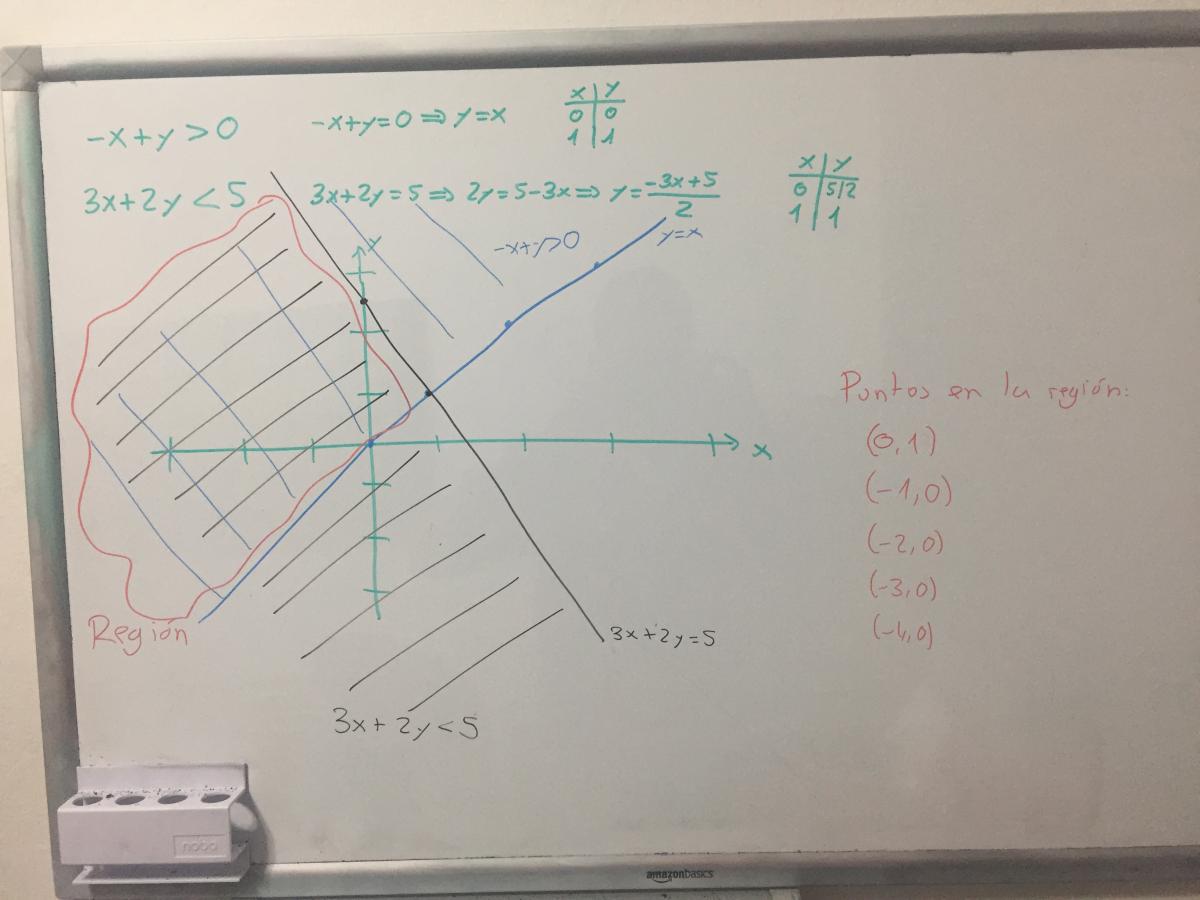 -x+y>0
-x+y=0 ⇒ y=x
x y
0 0
1 1
3x+2y<5
3x+2y=5 ⇒ 2y=5-3x ⇒ y=(-3x+5)/2
x y
0 5/2
1 1
-x+y>0
y=x
y
x
Puntos en la región:
(0,1)
(-1,0)
(-2,0)
(-3,0)
(-4,0)
Región
3x+2y=5
3x+2y<5
nobo
amazonbasics